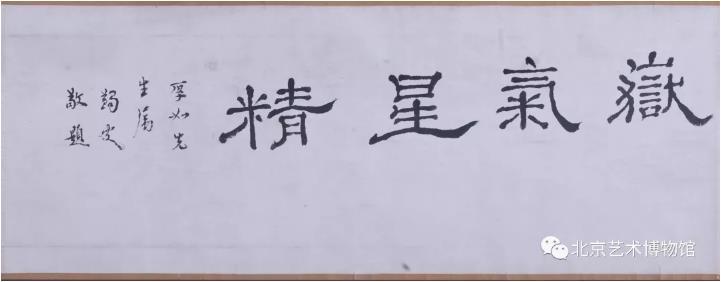 嶽氣星精
孚如先
生屬
蠲叟
敬題
北京艺术博物馆